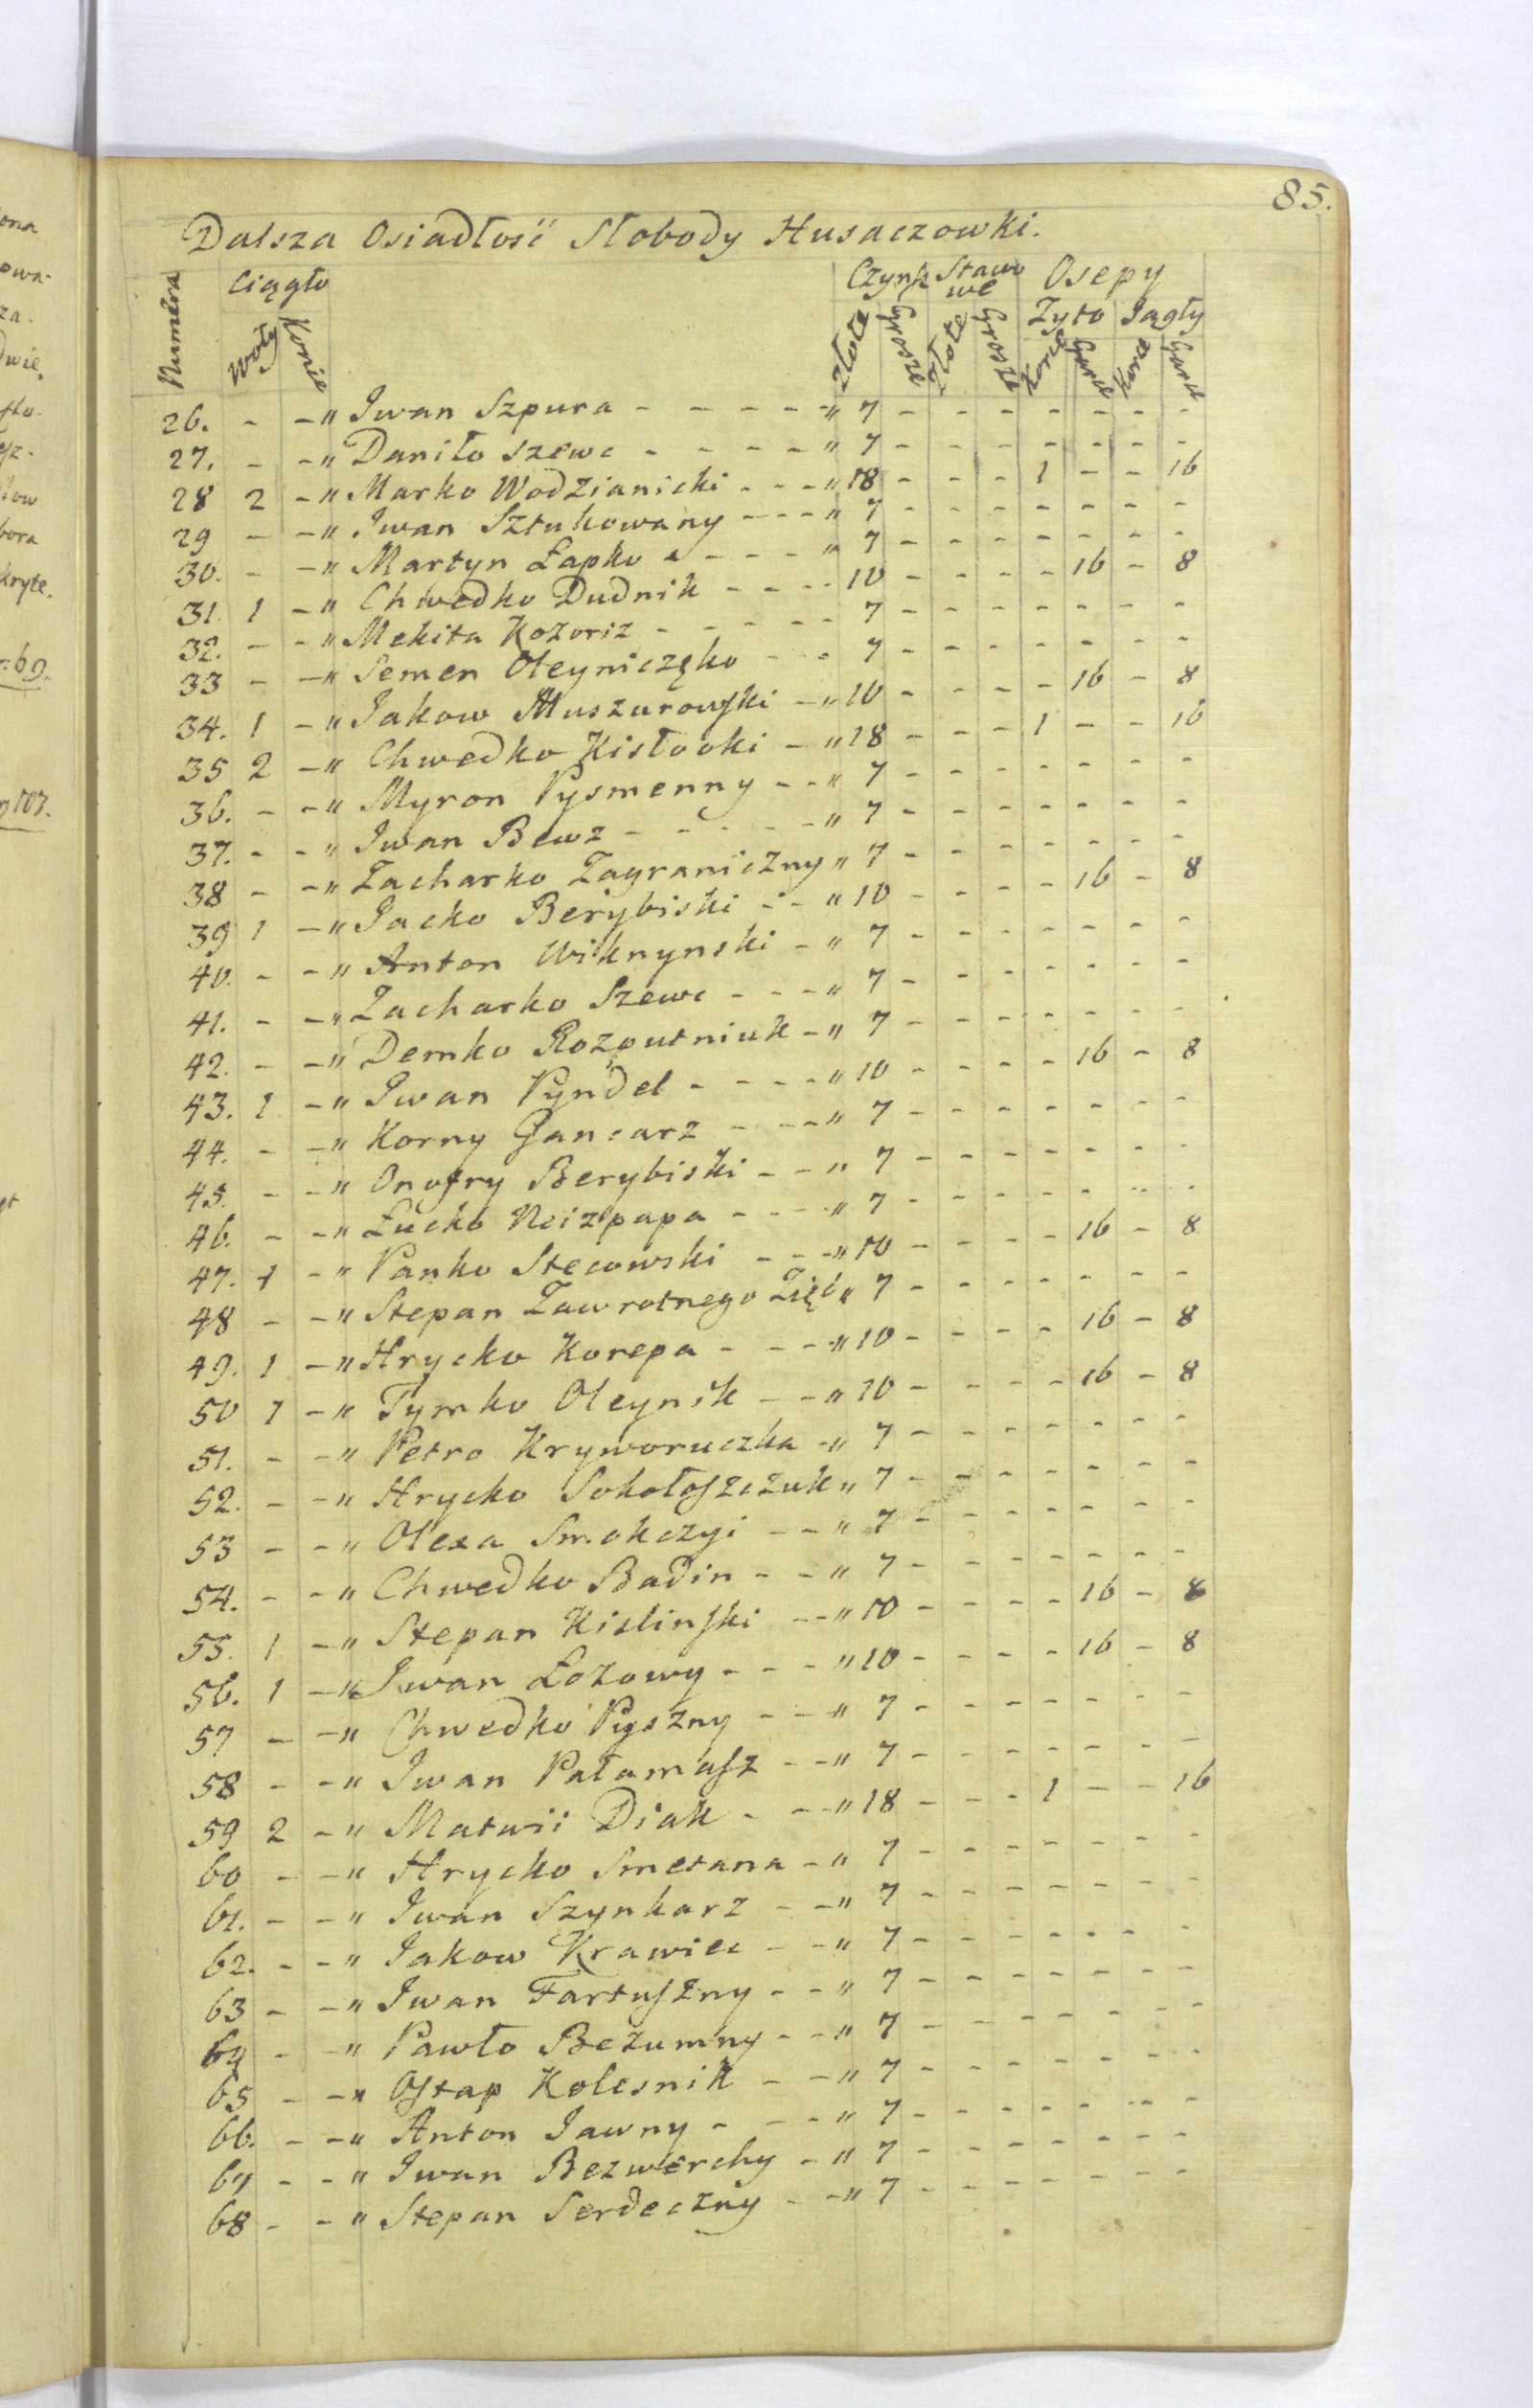 85.
Dalsza Osiadłość Słobody Husaczowki.
Numera Ciągło Czynsz Stawowe Osepy
Woły Konie Złote Grosze Złote Grosze Żyto Jagły
Garce Garce
26. - - " Iwan Szpura - - - - - " 7 - - - - - - -
27. - - " Daniło Szewc - - - - " 7 - - - - - - -
28 2 - " Marko Wodzianicki - - - " 18 - - - 1 - - 16
29 - - " Iwan Sztukowany - - - " 7 - - - - - - -
30. - - " Martyn Łapko - - - - " 7 - - - - - - -
31. 1 - " Chwedko Dudnik - - - - 10 - - - - 16 - 8
32. - - " Mekita Kozoriz - - - - - 7 - - - - - - -
33 - - " Semen Oleyniczęko - - - 7 - - - - - - -
34. 1 - " Jakow Muszurowski - " 10 - - - - 16 - 8
35 2 - " Chwedko Kisłooki - " 18 - - - 1 - - 16
36. - - " Myron Pysmenny - - " 7 - - - - - - -
37. - - " Iwan Bewz - - - - - " 7 - - - - - - -
38 - - " Zacharko Zagraniczny " 7 - - - - - - -
39 1 - " Jacko Berybiski - - " 10 - - - - 16 - 8
40. - - " Anton Wiknynski - " 7 - - - - - - -
41. - - " Zacharko Szewc - - - " 7 - - - - - - -
42. - - " Demko Rozputniuk - " 7 - - - - - - -
43. 1 - " Iwan Pyndel - - - - " 10 - - - - 16 - 8
44. - - " Korny Gancarz - - - " 7 - - - - - - -
45. - - " Onofry Berybiski - - " 7 - - - - - - -
46. - - " Łucko Neizpapa - - - " 7 - - - - - - -
47. 1 - " Panko Stecowski - - - " 10 - - - - 16 - 8
48 - - " Stepan Zawrotnego Zięć " 7 - - - - - - -
49. 1 - " Hrycko Korepa - - - " 10 - - - - 16 - 8
50 1 - " Tymko Oleynik - - - " 10 - - - - 16 - 8
51. - - " Petro Kryworuczka - " 7 - - - - - - -
52. - - " Hrycko Sokołoszczuk " 7 - - - - - - -
53 - - " Olexa Smokczyi - - " 7 - - - - - - -
54. - - " Chwedko Badin - - " 7 - - - - - - -
55. 1 - " Stepan Kislinski - - " 10 - - - - 16 - 8
56. 1 - " Iwan Łozowy - - - " 10 - - - - 16 - 8
57 - - " Chwedko Pyszny - - " 7 - - - - - - -
58 - - " Iwan Pałamasz - - " 7 - - - - - - -
59 2 - " Matwii Diak - - - " 18 - - - 1 - - 16
60 - - " Hrycko Smetana - " 7 - - - - - - -
61. - - " Iwan Szynkarz - - " 7 - - - - - - -
62. - - " Jakow Krawiec - - " 7 - - - - - - -
63 - - " Iwan Fartuszny - - " 7 - - - - - - -
64 - - " Pawło Bezumny - - " 7 - - - - - - -
65 - - " Ostap Kolesnik - - " 7 - - - - - - -
66. - - " Anton Jawny - - - " 7 - - - - - - -
67 - - " Iwan Bezwerchy - " 7 - - - - - - -
68 - - " Stepan Serdeczny - - " 7 - - - - - - -